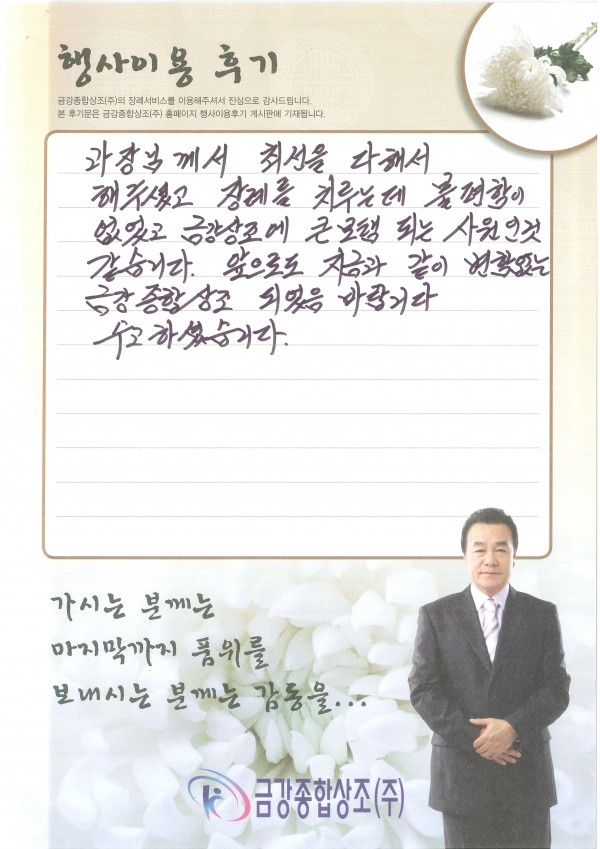 행사이용 후기
금강종합상조(주)의 장례서비스를 이용해주셔서 진심으로 감사드립니다.
본 후기문은 금강종합상조(주) 홈페이지 행사이용후기 게시판에 기재됩니다.
과장님께서 최선을 다해서
해주셨고 장례를 치루는데 불편함이
없었고 금강상조에 큰 보탬 되는 사원인것
같습니다. 앞으로도 지금과 같이 변함없는
금강종합상조 되었음 바랍니다
수고하셨습니다.
가시는 분께는
마지막까지 품위를
보내시는 분께는 감동을...
금강종합상조(주)